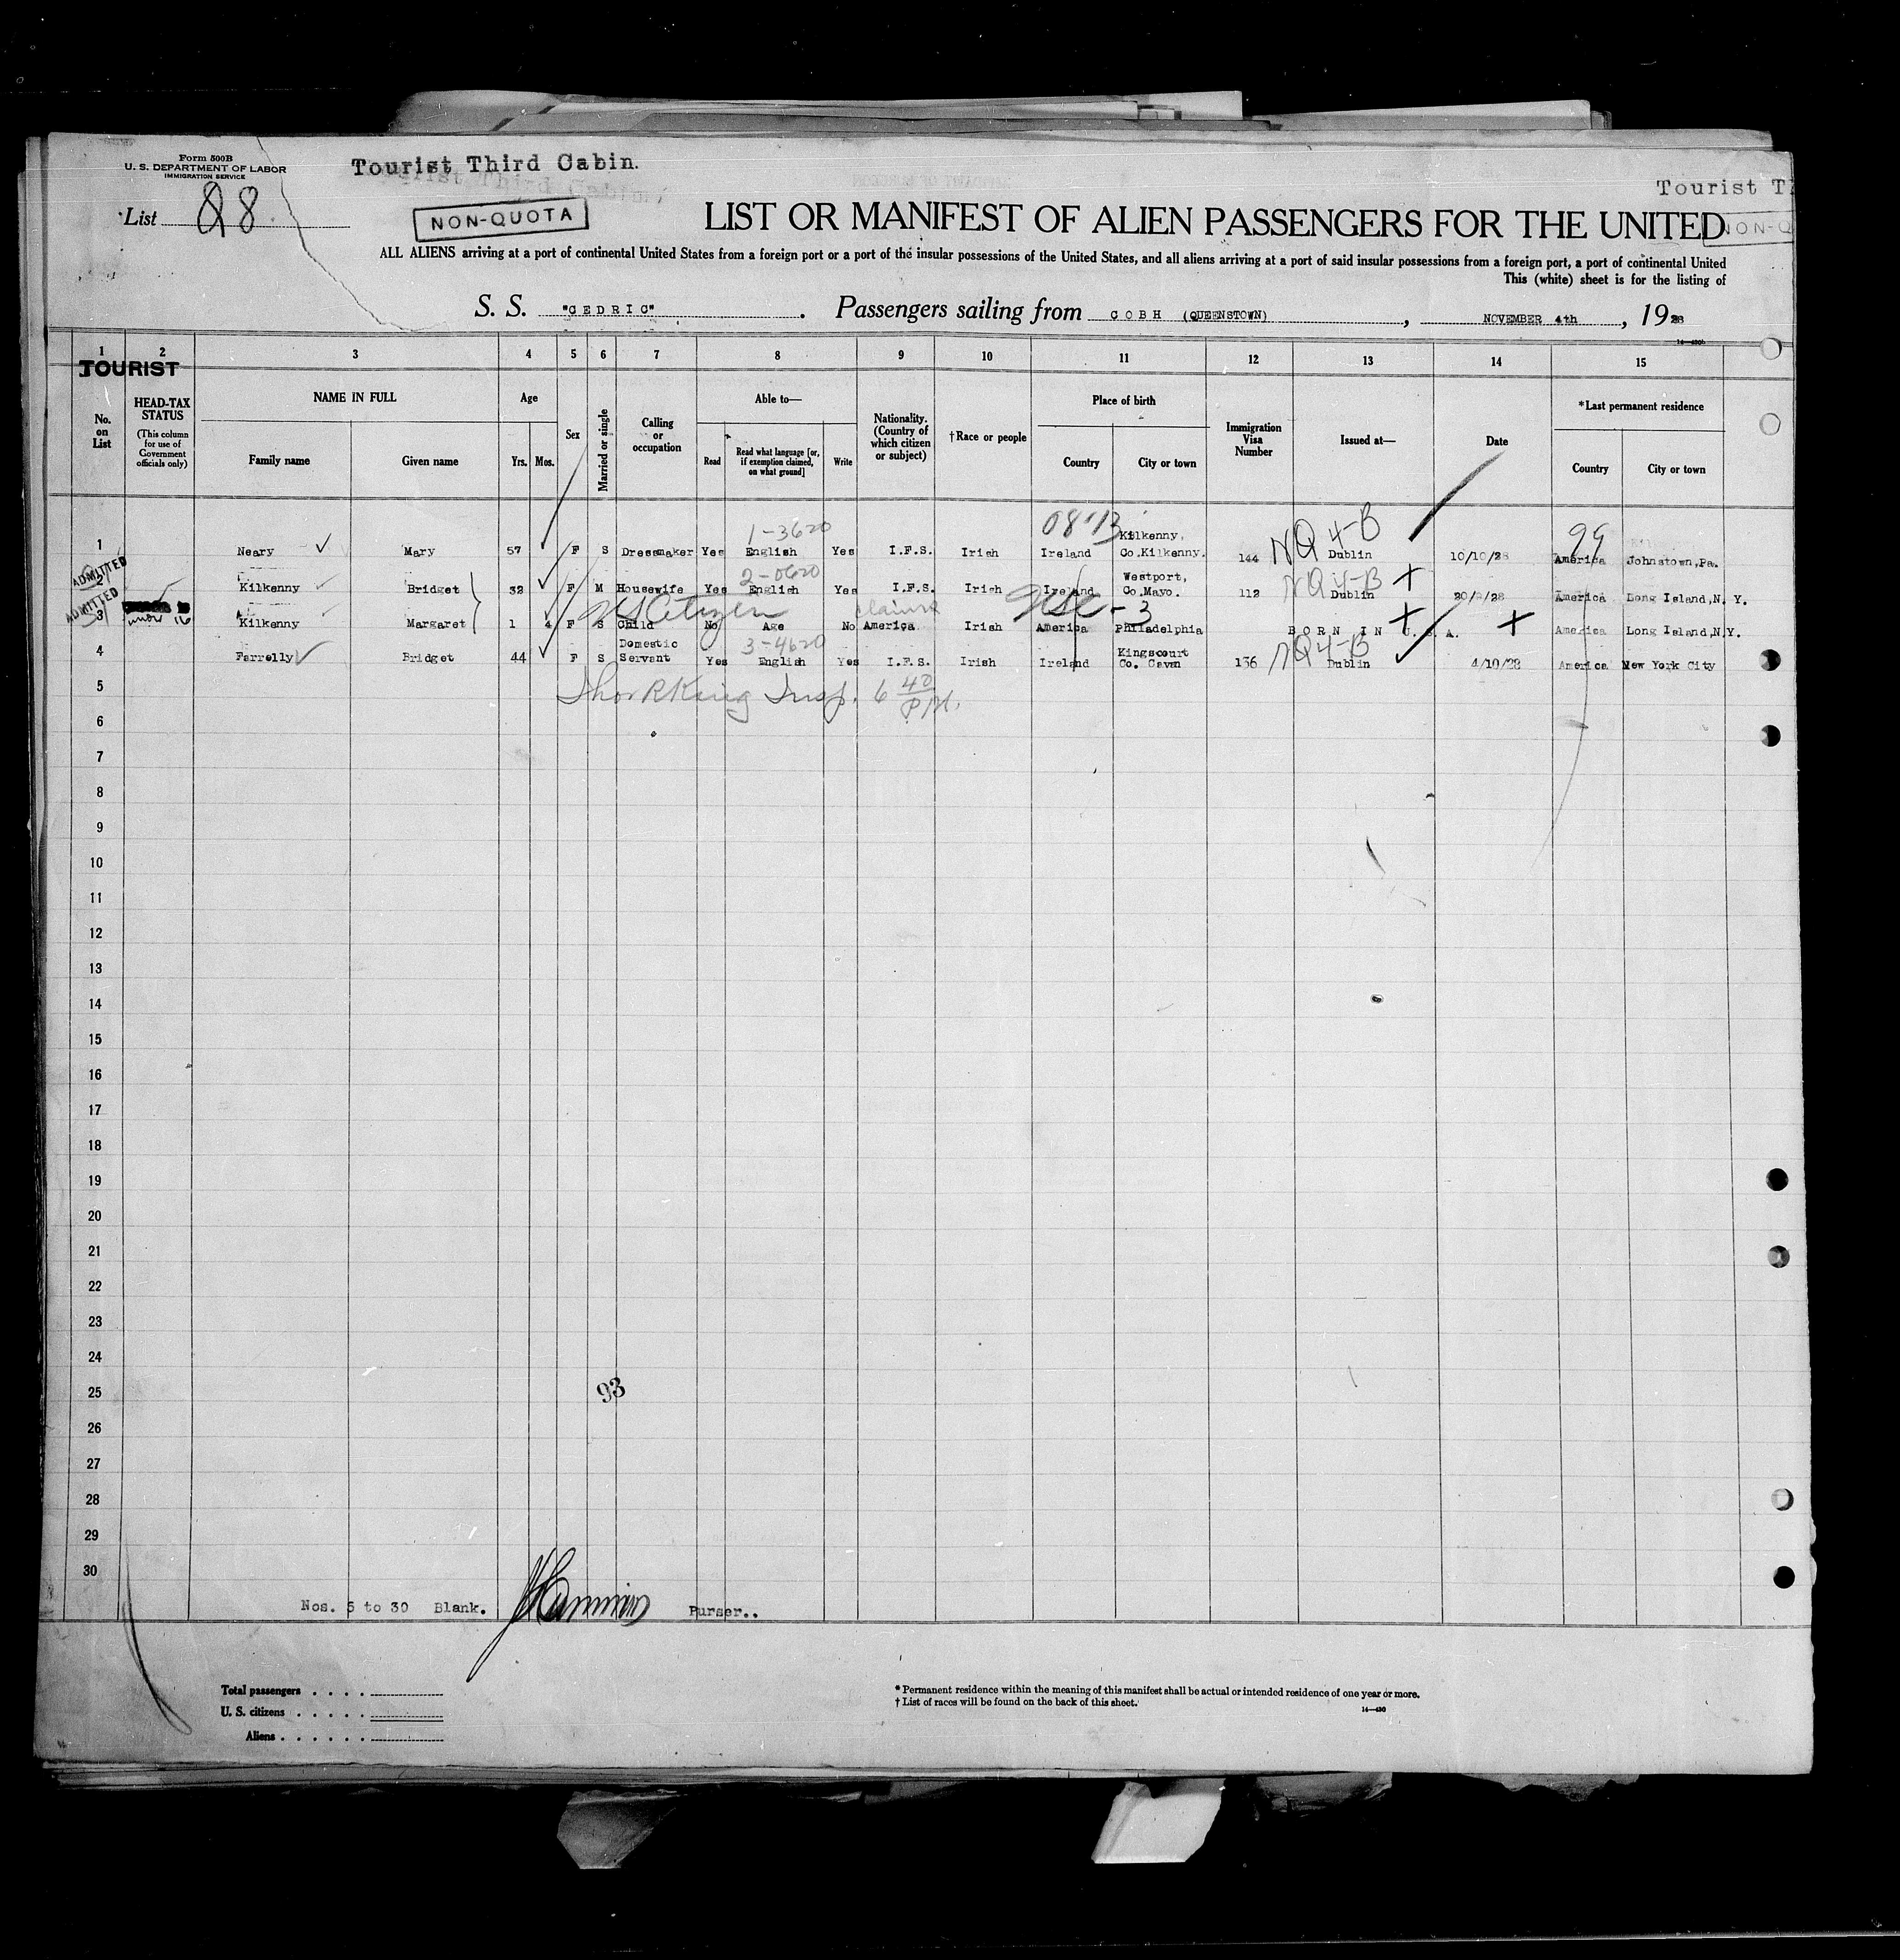 Form 500B
U. S. DEPARTMENT OF LABOR
IMMIGRATION SERVICE
Tourist Third Cabin.
Tourist T
List 28
NON-QUOTA
LIST OR MANIFEST OF ALIEN PASSENGERS FOR THE UNITED
ALL ALIENS arriving at a port of continental United States from a foreign port or a port of the insular possessions of the United States, and all aliens arriving at a port of said insular possessions from a foreign port, a port of continental United
This (white) sheet is for the listing of
S. S. "CEDRIC". Passengers sailing from COBH (QUEENSTOWN), NOVEMBER 4th, 1928
14—430b
1 2 3 4 5 6 7 8 9 10 11 12 13 14 15
TOURIST
No. on List
HEAD-TAX STATUS (This column for use of Government officials only)
NAME IN FULL
Family name Given name
Age
Yrs. Mos.
Sex
Married or single
Calling or occupation
Able to—
Read
Read what language [or, if exemption claimed, on what ground]
Write
Nationality. (Country of which citizen or subject)
†Race or people
Place of birth
Country City or town
Immigration Visa Number
Issued at—
Date
*Last permanent residence
Country City or town
1-3620 NQ 4-B 99
1 Neary Mary 57 F S Dressmaker Yes English Yes I.F.S. Irish Ireland Kilkenny, Co.Kilkenny. 144 Dublin 10/10/28 America Johnstown,Pa.
ADMITTED 2-0620 NQ 4-B
2 Kilkenny Bridget 32 F M Housewife Yes English Yes I.F.S. Irish Ireland Westport, Co.Mayo. 112 Dublin America Long Island,N. Y.
ADMITTED under 16 US Citizen claims USC-3
3 Kilkenny Margaret 1 4 F S Child No Age No America Irish America Philadelphia BORN IN U.S.A. America Long Island,N.Y.
3-4620 NQ4-B
4 Farrelly Bridget 44 F S Domestic Servant Yes English Yes I.F.S. Irish Ireland Kingscourt Co. Cavan 136 Dublin 4/10/28 America New York City
Thos R King Insp. 6 40 P.M.
5
6
7
8
9
10
11
12
13
14
15
16
17
18
19
20
21
22
23
24
25 93
26
27
28
29
30
Nos. 5 to 30 Blank. Purser..
Total passengers
U. S. citizens
Aliens
* Permanent residence within the meaning of this manifest shall be actual or intended residence of one year or more.
† List of races will be found on the back of this sheet.
14—430